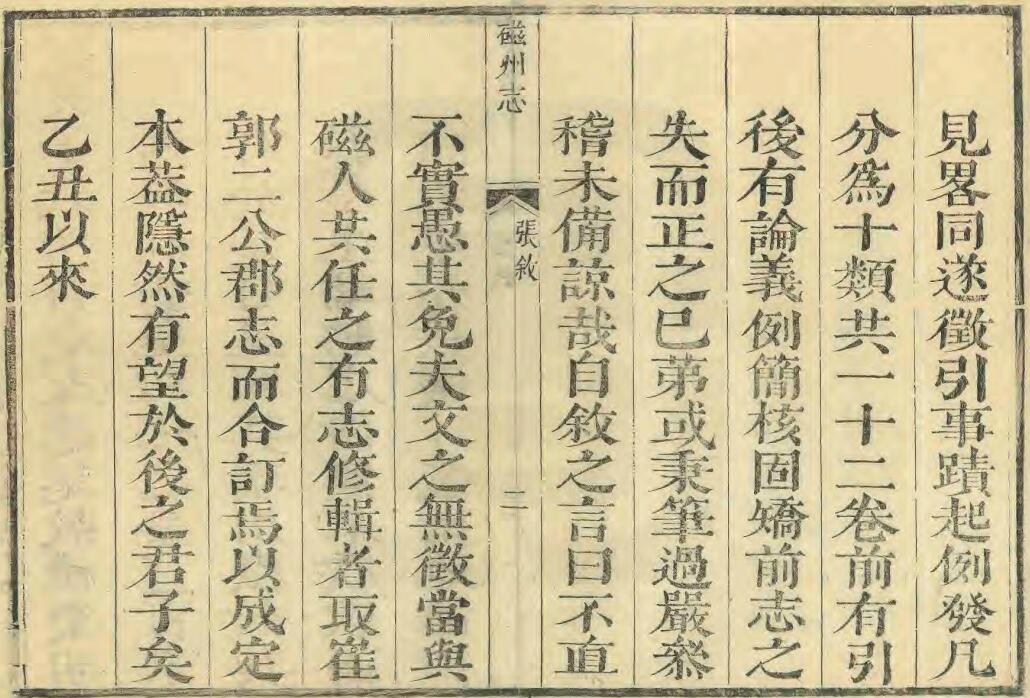 見畧同遂徵引事蹟起例發凡
分爲十類共一十二卷前有引
後有論義例簡核固矯前志之
失而正之巳苐或秉筆過嚴叅
稽未備諒哉自敘之言曰不直
磁州志
張敘
二
不實愚其免夫文之無徵當與
磁人共任之有志修輯者取崔
郭二公郡志而合訂焉以成定
本葢隱然有望於後之君子矣
乙丑以來